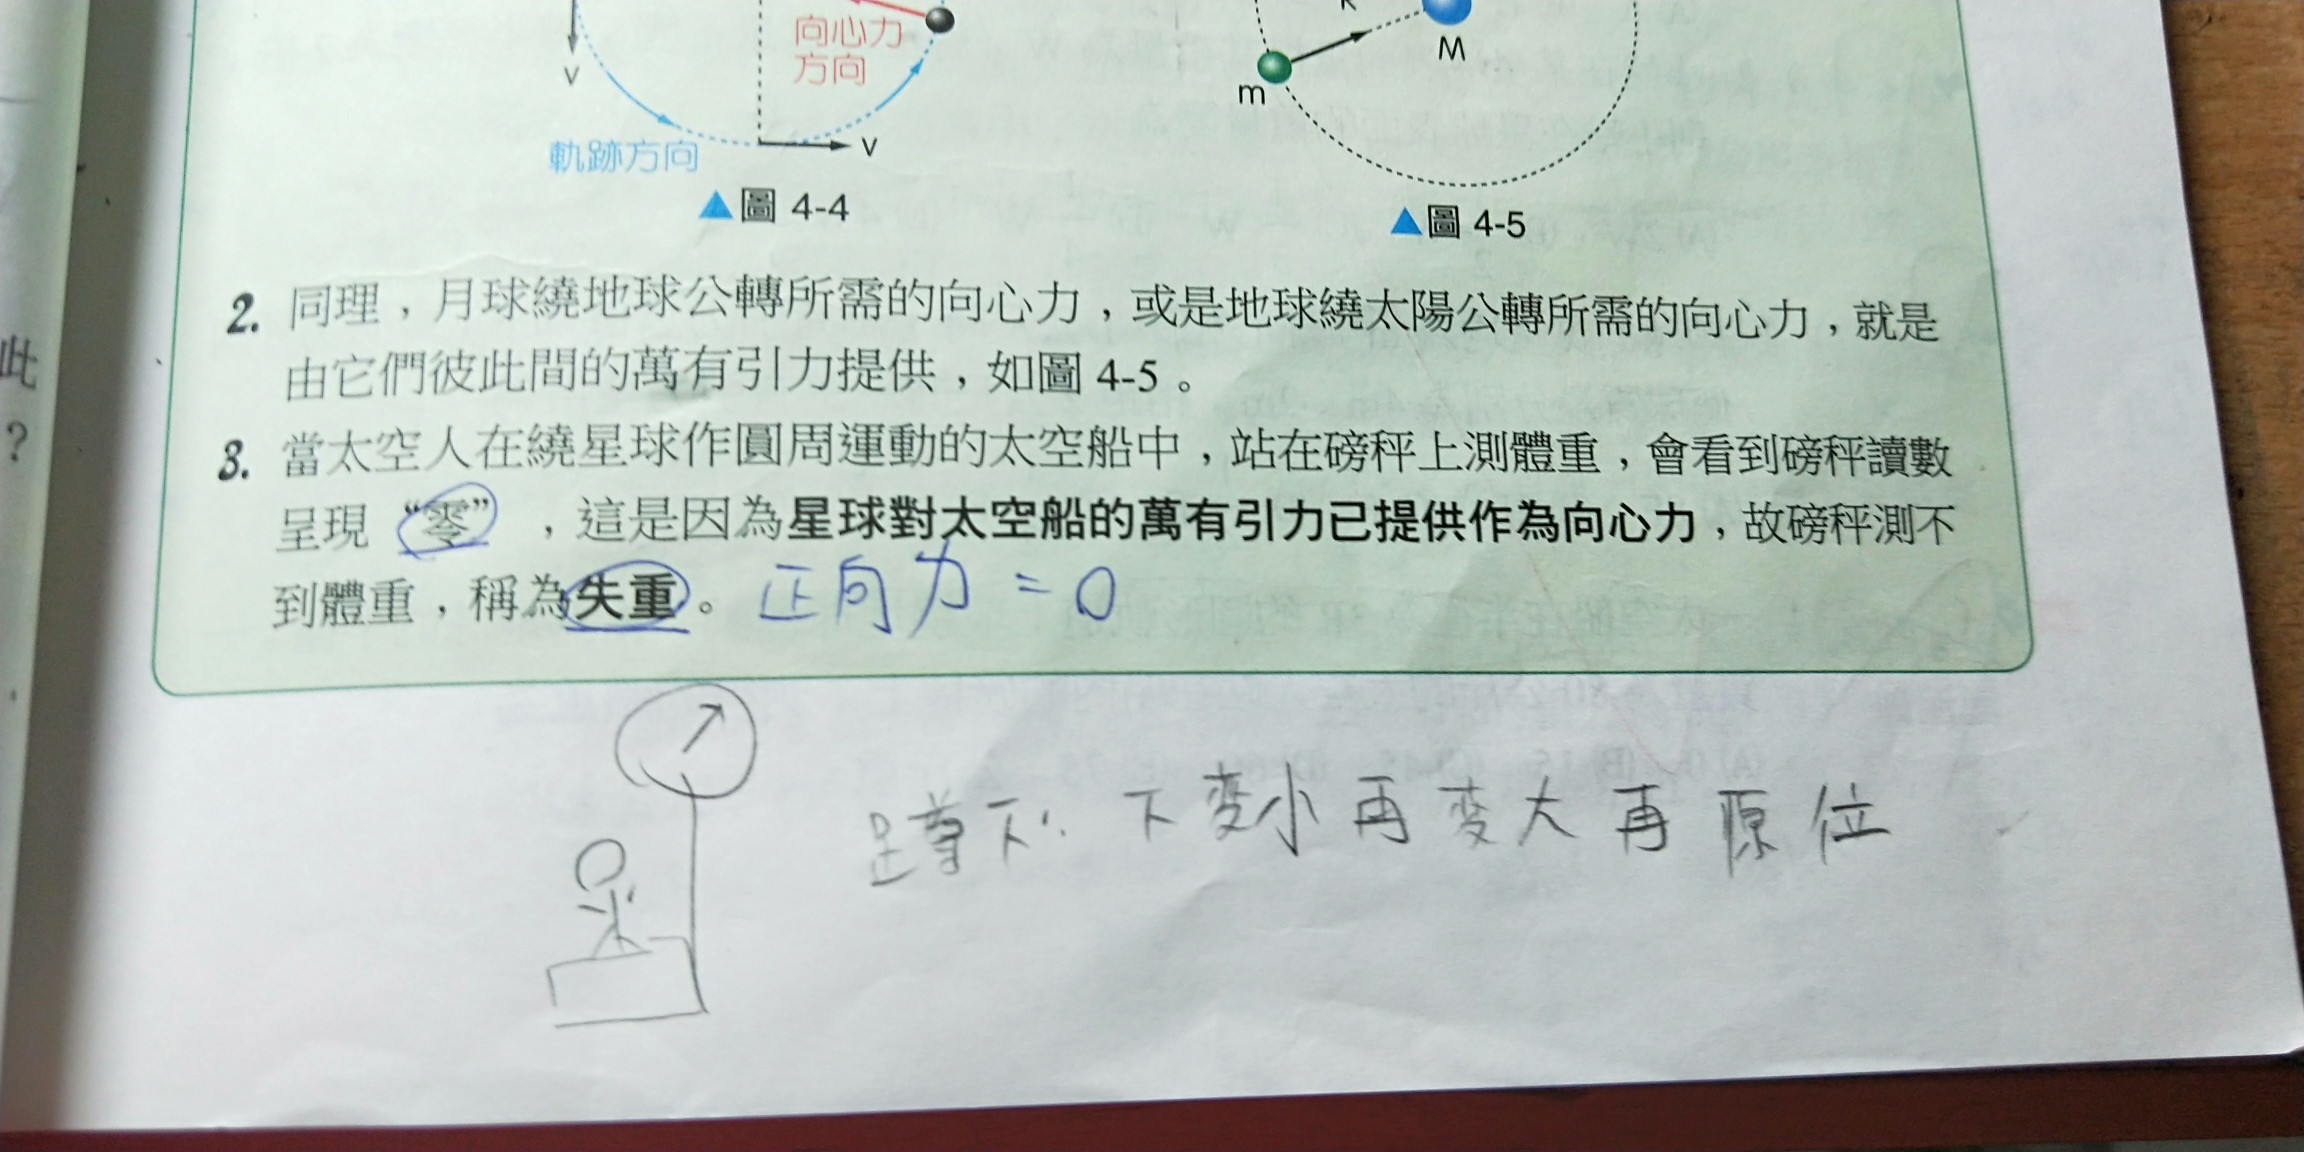 向心力
方向
v
軌跡方向
v
▲圖 4-4
M
m
▲圖 4-5
2. 同理,月球繞地球公轉所需的向心力,或是地球繞太陽公轉所需的向心力,就是
由它們彼此間的萬有引力提供,如圖 4-5。
3. 當太空人在繞星球作圓周運動的太空船中,站在磅秤上測體重,會看到磅秤讀數
呈現 “零” ,這是因為星球對太空船的萬有引力已提供作為向心力,故磅秤測不
到體重,稱為失重。 正向力 = 0
蹲下: 下變小再變大再原位
此
?